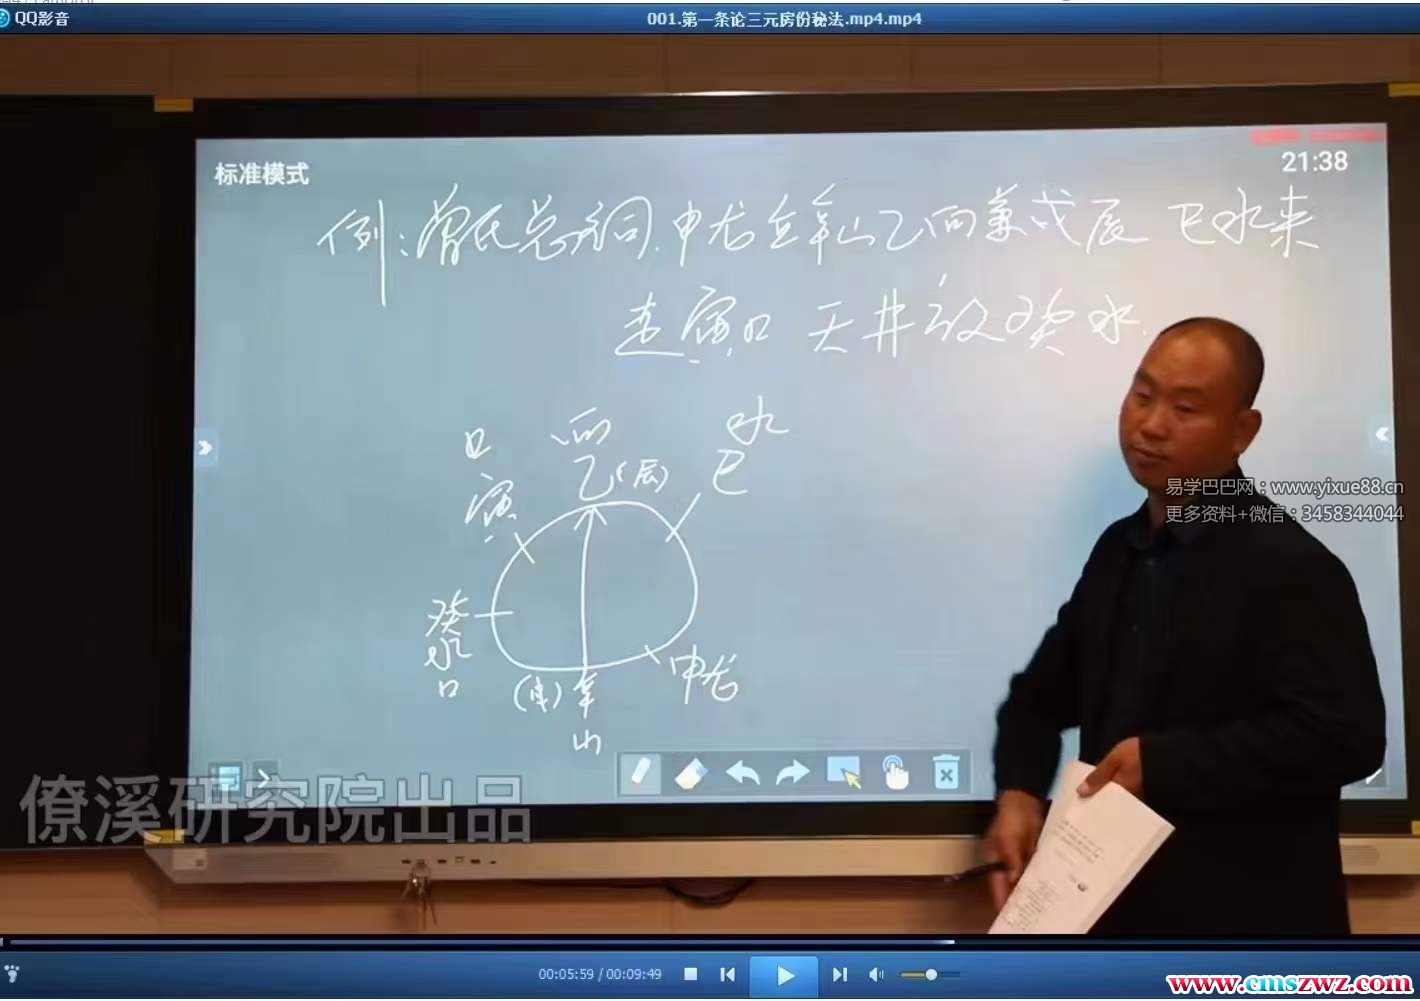 QQ影音
001.第一条论三元房份秘法.mp4.mp4
标准模式
21:38
例:曾氏总祠.申龙立辛山乙向兼戌辰 巳水来
走寅口 天井放癸水.
口
寅
向
乙(辰)
水
巳
癸
水
口
(戌)辛
山
申龙
易学巴巴网：www.yixue88.cn
更多资料+微信：3458344044
僚溪研究院出品
00:05:59 / 00:09:49
www.cmszwz.com